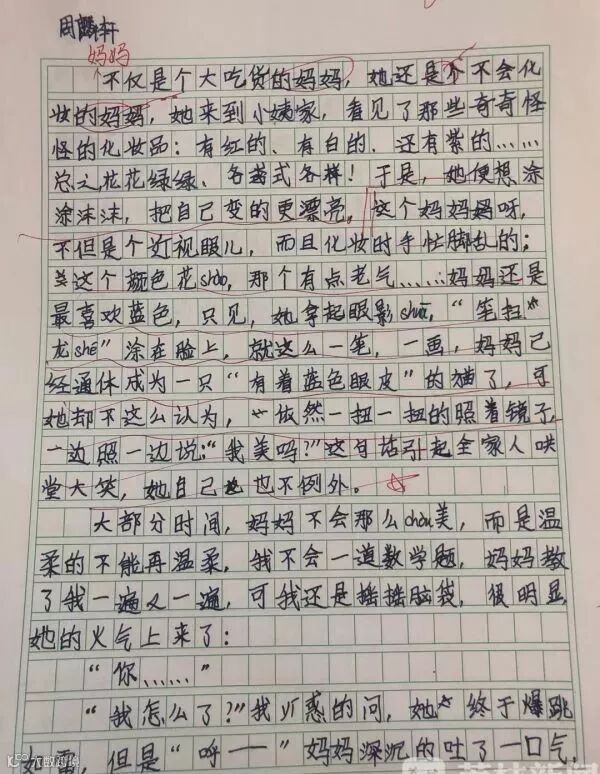 周麟轩
妈妈
不仅是个大吃货的妈妈，她还是个不会化
妆的妈妈，她来到小姨家，看见了那些奇奇怪
怪的化妆品：有红的、有白的、还有紫的……
总之花花绿绿、各式各样！于是，她便想涂
涂沫沫，把自己变的更漂亮，这个妈妈妈呀，
不但是个近视眼儿，而且化妆时手忙脚乱的；
这个颜色花shào，那个有点老气……妈妈还是
最喜欢蓝色，只见，她拿起眼影shuā，“笔扫
龙shé”涂在脸上，就这么一笔，一画，妈妈已
经通体成为一只“有着蓝色眼皮”的猫了，可
她却不这么认为，依然一扭一扭的照着镜子，
一边照一边说：“我美吗？”这句话引起全家人哄
堂大笑，她自己也不例外。
大部分时间，妈妈不会那么chòu美，而是温
柔的不能再温柔，我不会一道数学题，妈妈教
了我一遍又一遍，可我还是摇摇脑袋，很明显，
她的火气上来了：
“你……”
“我怎么了？”我疑惑的问，她终于爆跳
如雷，但是“呼——”妈妈深沉的吐了一口气，
大数跨境